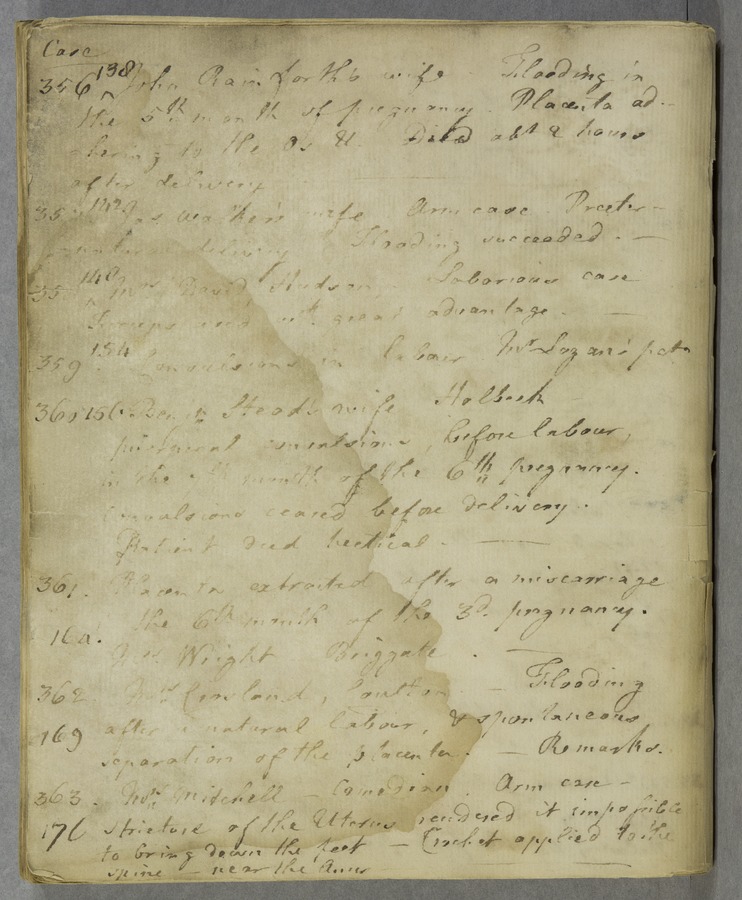 Case
356 138 John Rainforth's wife Flooding in
the 5th month of pregnancy. Placenta ad-
hering to the Os U. Died abt 2 hours
after delivery
walker's wife Arm case. Preter-
natural delivery Flooding succeeded. —
149 David Hudson, Laborious case
great advantage. —
359 154 Convulsions in labour Mr Logan's patn
360 156 Benjn Stead's wife Holbeck
puerperal convulsions, before labour,
in the month of the 6th pregnancy.
Convulsions ceased before delivery.
Patient died hectical. —
361. Placenta extracted after a miscarriage
the 6th month of the 3d. pregnancy.
Wright Briggate. —
362 — Flooding
169 after a natural labour, & spontaneous
separation of the placenta. — Remarks.
363. Mrs Mitchell — Comedian. Arm case —
176 stricture of the Uterus rendered it impossible
to bring down the feet — Crochet applied to the
spine — near the Anus